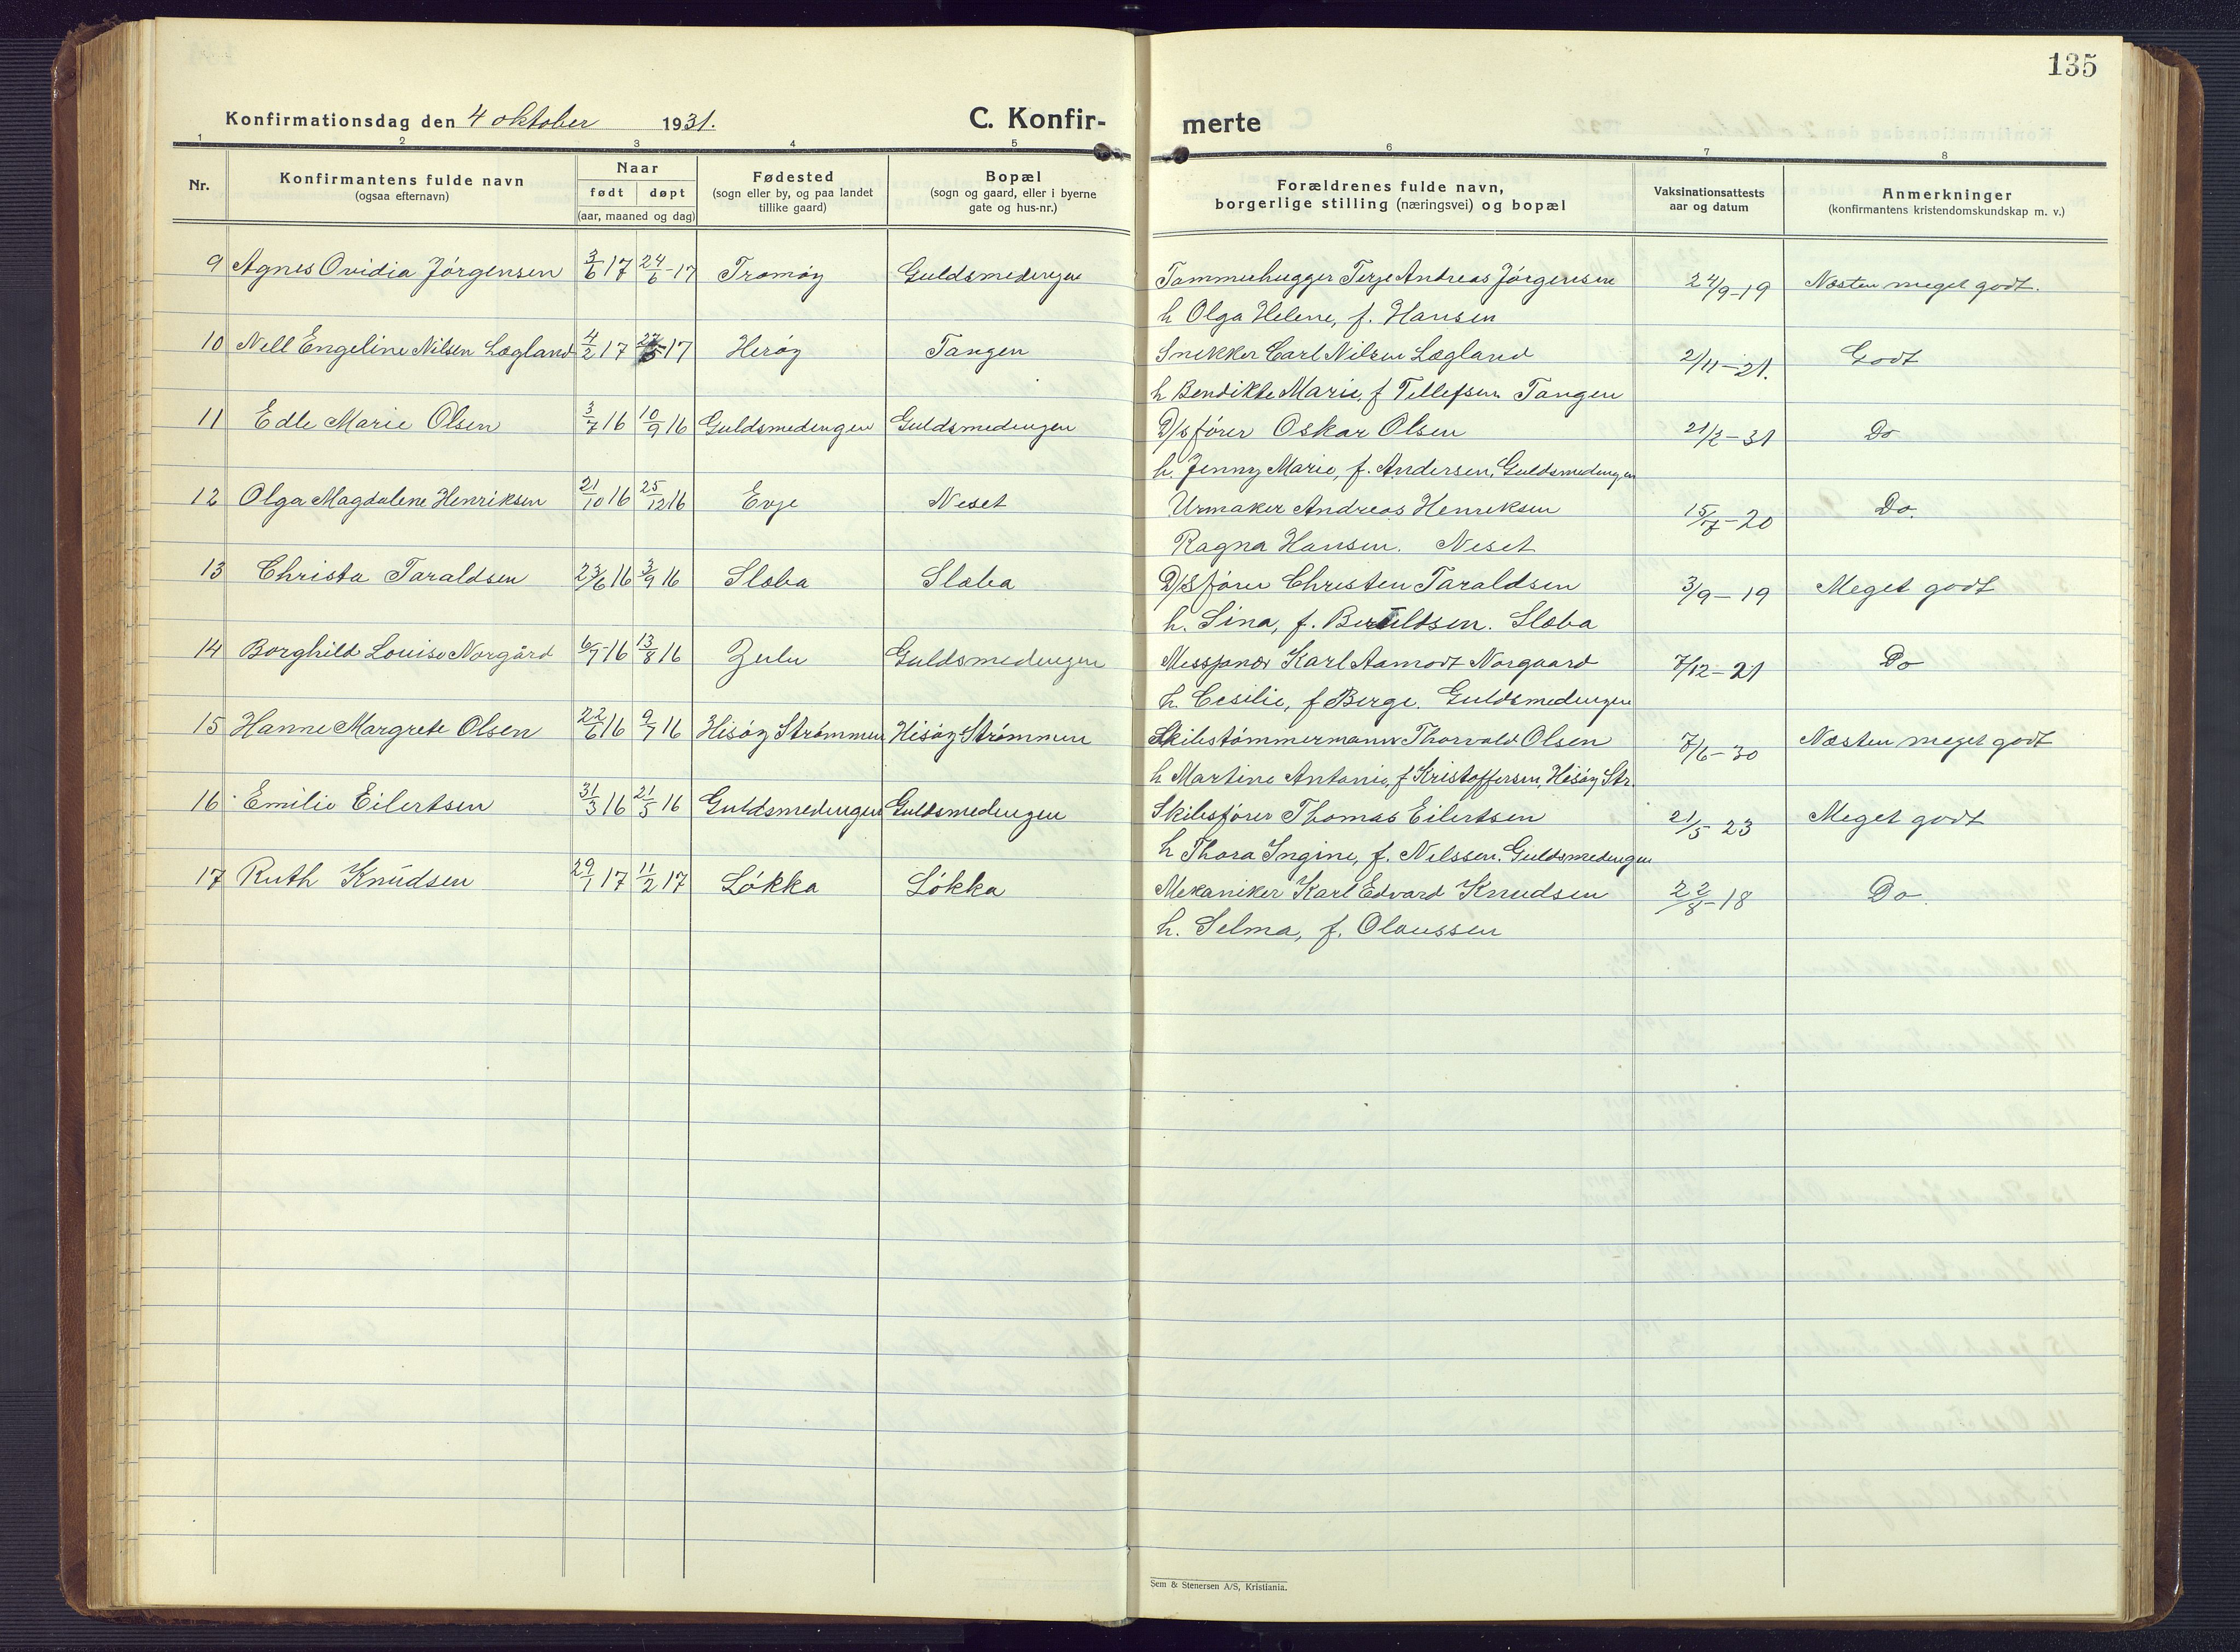 135
Konfirmationsdag den 4 oktober 1931. C. Konfir- merte
1 2 3 4 5 6 7 8
Nr. Konfirmantens fulde navn (ogsaa efternavn) Naar født døpt (aar, maaned og dag) Fødested (sogn eller by, og paa landet tillike gaard) Bopæl (sogn og gaard, eller i byerne gate og hus-nr.) Forældrenes fulde navn, borgerlige stilling (næringsvei) og bopæl Vaksinationsattests aar og datum Anmerkninger (konfirmantens kristendomskundskap m. v.)
9 Agnes Ovidia Jörgensen 3/6 17 24/6-17 Tromöy Guldsmedengen Tømmerhugger Terje Andreas Jörgensen 24/9-19 Næsten meget godt.
h Olga Helene, f. Hansen
10 Nell Engeline Nilsen Lægland 4/2 17 17 Heröy Tangen Snekker Carl Nilsen Lægland 2/11-21. Godt
h Bendikte Marie, f Tellefsen Tangen
11 Edle Marie Olsen 3/7 16 10/9 16 Guldsmedengen Guldsmedengen D/s fører Oskar Olsen 21/2-31 Do
h. Jenny Marie, f. Andersen, Guldsmedengen
12 Olga Magdalene Henriksen 21/10 16 25/12 16 Evje Neset Urmaker Andreas Henriksen 15/7-20 Do.
Ragna Hansen. Neset
13 Christa Taraldsen 23/6 16 3/9 16 Sløba Sløba D/S fører Christen Taraldsen 3/9-19 Meget godt
h. Sina, f. Sløba
14 Borghild Louise Norgård 6/7 16 13/8 16 Zulu Guldsmedengen Missjonær Karl Aamodt Norgaard 7/12-21 Do
h. Cesilie, f Berge. Guldsmedengen
15 Hanne Margrete Olsen 22/6 16 9/7 16 Hisöy Strömmen Hisöy Strömmen Skibstömmermann Thorvald Olsen 7/6-30 Næsten meget godt
h Martine Antonie, f Kristoffersen, Hisöy Str.
16 Emilie Eilertsen 31/3 16 21/5 16 Guldsmedengen Guldsmedengen Skibsfører Thomas Eilertsen 21/5-23 Meget godt
h Thora Ingine, f. Nilssen. Guldsmedengen
17 Ruth Knudsen 29/1 17 11/2 17 Lökka Lökka Mekaniker Karl Edvard Knudsen 22/8-18 Do.
h. Selma, f. Olaussen
Sem & Stenersen A/S, Kristiania.